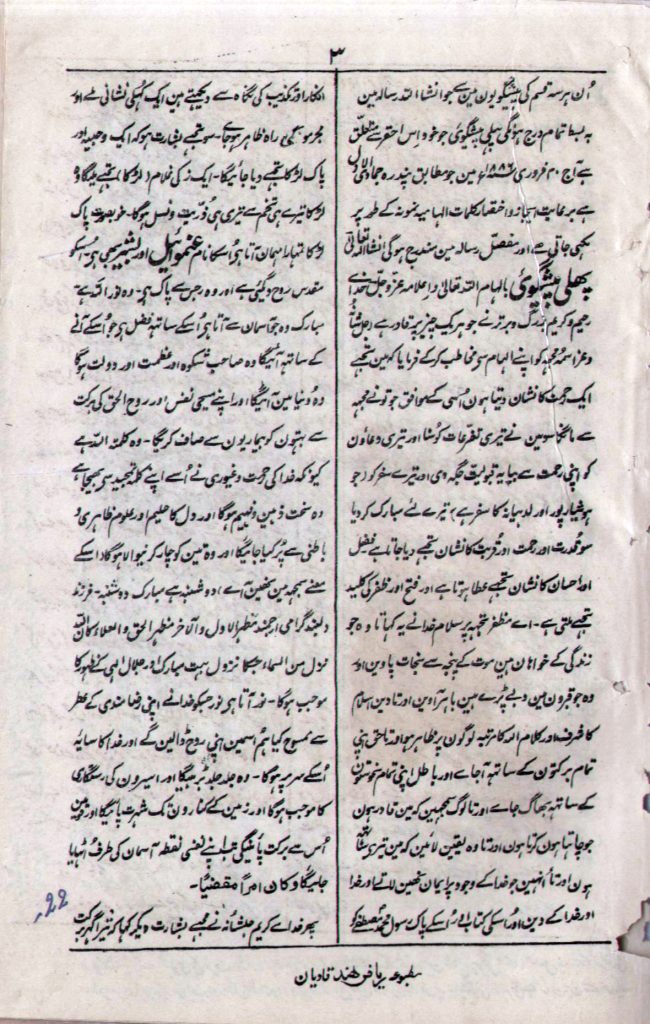 ۳
اُن ہر سہ قسم کی پیشگویوں مین سے جو انشاء اللہ رسالہ مین
بہ بسط تمام درج ہونگی پہلی پیشگوئی جو خود اس احقر سے متعلق
ہے آج ۲۰ فروری ۱۸۸۶ء مین جو مطابق پندرہ جمادی الاول
ہے برعایت ایجاز و اختصار کلمات الہامیہ نمونہ کے طور پر
لکھی جاتی ہے اور مفصل رسالہ مین مندرج ہوگی انشاء اللہ تعالیٰ
پہلی پیشگوئی بالہام اللہ تعالیٰ و اعلامہ عز و جل خدائے
رحیم و کریم بزرگ و برتر نے جو ہریک چیز پر قادر ہے (جلّ شانہ
و عزاسمہٗ) مجھہ کو اپنے الہام سی مخاطب کر کے فرمایا کہ مین تجھے
ایک رحمت کا نشان دیتا ہون اُسی کے موافق جو تونے مجھہ
سے مانگا سو مین نے تیری تضرعات کو سُنا اور تیری دعاؤن
کو اپنی رحمت سے بپایہ قبولیت جگہ دی اور تیرے سفر کو (جو
ہوشیارپور اور لودہیانہ کا سفر ہے) تیرے لئے مبارک کر دیا
سو قدرت اور رحمت اور قربت کا نشان تجھے دیا جاتا ہے فضل
اور احسان کا نشان تجھے عطا ہوتا ہے اور فتح اور ظفر کی کلید
تجھے ملتی ہے۔ اے مظفر تجھہ پر سلام خدا نے یہ کہا تا وہ جو
زندگی کے خواہان ہین موت کے پنجہ سے نجات پاوین اور
وہ جو قبرون مین دبے پڑے ہین باہر آوین اور تا دین اسلام
کا شرف اور کلام اللہ کا مرتبہ لوگون پر ظاہر ہو اور تا حق اپنی
تمام برکتون کے ساتھہ آجاے اور باطل اپنی تمام نحوستون
کے ساتھہ بھاگ جاے اور تا لوگ سمجھین کہ مین قادر ہون
جو چاہتا ہون کرتا ہون اور تا وہ یقین لائین کہ مین تیری ساتھہ
ہون اور تا اُنہین جو خدا کے وجود پر ایمان نہین لاتے اور خدا
اور خدا کے دین اور اُسکی کتاب اور اُسکے پاک رسول محمد مصطفےٰ کو
انکار اور تکذیب کی نگاہ سے دیکھتے ہین ایک کھلی نشانی ملے اور
مجرمون کی راہ ظاہر ہو جاے۔ سو تجھے بشارت ہو کہ ایک وجیہ اور
پاک لڑکا تجھے دیا جائیگا۔ ایک زکی غلام (لڑکا) تجھے ملیگا وہ
لڑکا تیرے ہی تخم سے تیری ہی ذریت و نسل ہوگا۔ خوبصورت پاک
لڑکا تمہارا مہمان آتا ہی اُسکا نام عنموائیل اور بشیر بھی ہی۔ اُسکو
مقدس روح دیگئی ہے اور وہ رجس سے پاک ہی۔ وہ نور اللہ ہے۔
مبارک وہ جو آسمان سے آتا ہی اُسکے ساتھہ فضل ہی جو اُسکے آنے
کے ساتھہ آئیگا وہ صاحب شکوہ اور عظمت اور دولت ہوگا
وہ دُنیا مین آئیگا اور اپنے مسیحی نفس اور روح الحق کی برکت
سے بہتون کو بیماریون سے صاف کریگا۔ وہ کلمۃ اللہ ہے
کیونکہ خدا کی رحمت و غیوری نے اُسے اپنے کلمہ تمجید سی بھیجا ہے
وہ سخت ذہین و فہیم ہوگا اور دل کا حلیم اور علوم ظاہری و
باطنی سے پُر کیا جائیگا اور وہ تین کو چار کرنیوالا ہوگا (اسکے
معنے سمجھہ مین نہین آے) دو شنبہ ہے مبارک دو شنبہ۔ فرزند
دلبند گرامی ارجمند مَظْہَرُ الاول و الآخر مظہر الحق و العلاء کان اللہ
نزل من السماء جسکا نزول بہت مبارک اور جلال الٰہی کے ظہور کا
موجب ہوگا۔ نور آتا ہی نور جسکو خدا نے اپنی رضامندی کے عطر
سے ممسوح کیا ہم اسمین اپنی روح ڈالین گے اور خدا کا سایہ
اُسکے سر پر ہوگا۔ وہ جلد جلد بڑہیگا اور اسیرون کی رستگاری
کا موجب ہوگا اور زمین کے کنارون تک شہرت پائیگا اور قومین
اُس سے برکت پائینگی تب اپنے نفسی نقطہ آسمان کی طرف اُٹھایا
جائیگا و کان امراً مقضیّا۔
پھر خداے کریم جلشانہٗ نے مجھے بشارت دیکر کہا کہ تیرا گھر برکت
22
مطبوعہ ریاض ہند قادیان